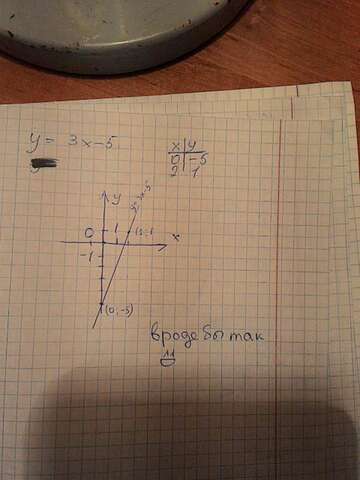 y = 3x-5
x y
0 -5
2 1
y
y=3x-5
0 1 (2;1) x
-1
(0;-5)
вроде бы так